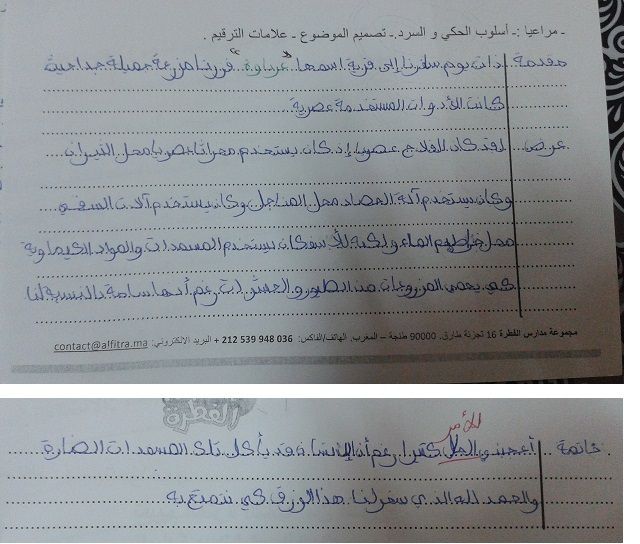 - مراعيا :- أسلوب الحكي و السرد.- تصميم الموضوع - علامات الترقيم .
مقدمة ذات يوم سافرنا إلى قرية اسمها "عرباوة" فزرنا مزرعة جميلة جدا حيث
كانت الأدوات المستخدمة عصرية
عرض لقد كان الفلاح عصريا إد كان يستخدم محراثا عصريا محل الثيران
وكان يستخدم آلة الحصاد محل المناجل وكان يستخدم آلات السقي
محل خراطيم الماء ولكنه للأسف كان يستخدم المسمدات والمواد الكيماوية
كي يحمي المزروعات من الطيور والحشرات رغم أنها سامة بالنسبة لنا
مجموعة مدارس الفطرة 16 تجزئة طارق. 90000 طنجة – المغرب. الهاتف/الفاكس: 036 948 539 212 + البريد الالكتروني: contact@alfitra.ma
الفطرة
الأمر
خاتمة أعجبني الحال كثيرا رغم أن الإنسان قد يأكل تلك المسمدات الضارة
والحمد لله الدي سخر لنا هذا الرزق كي نتمتع به